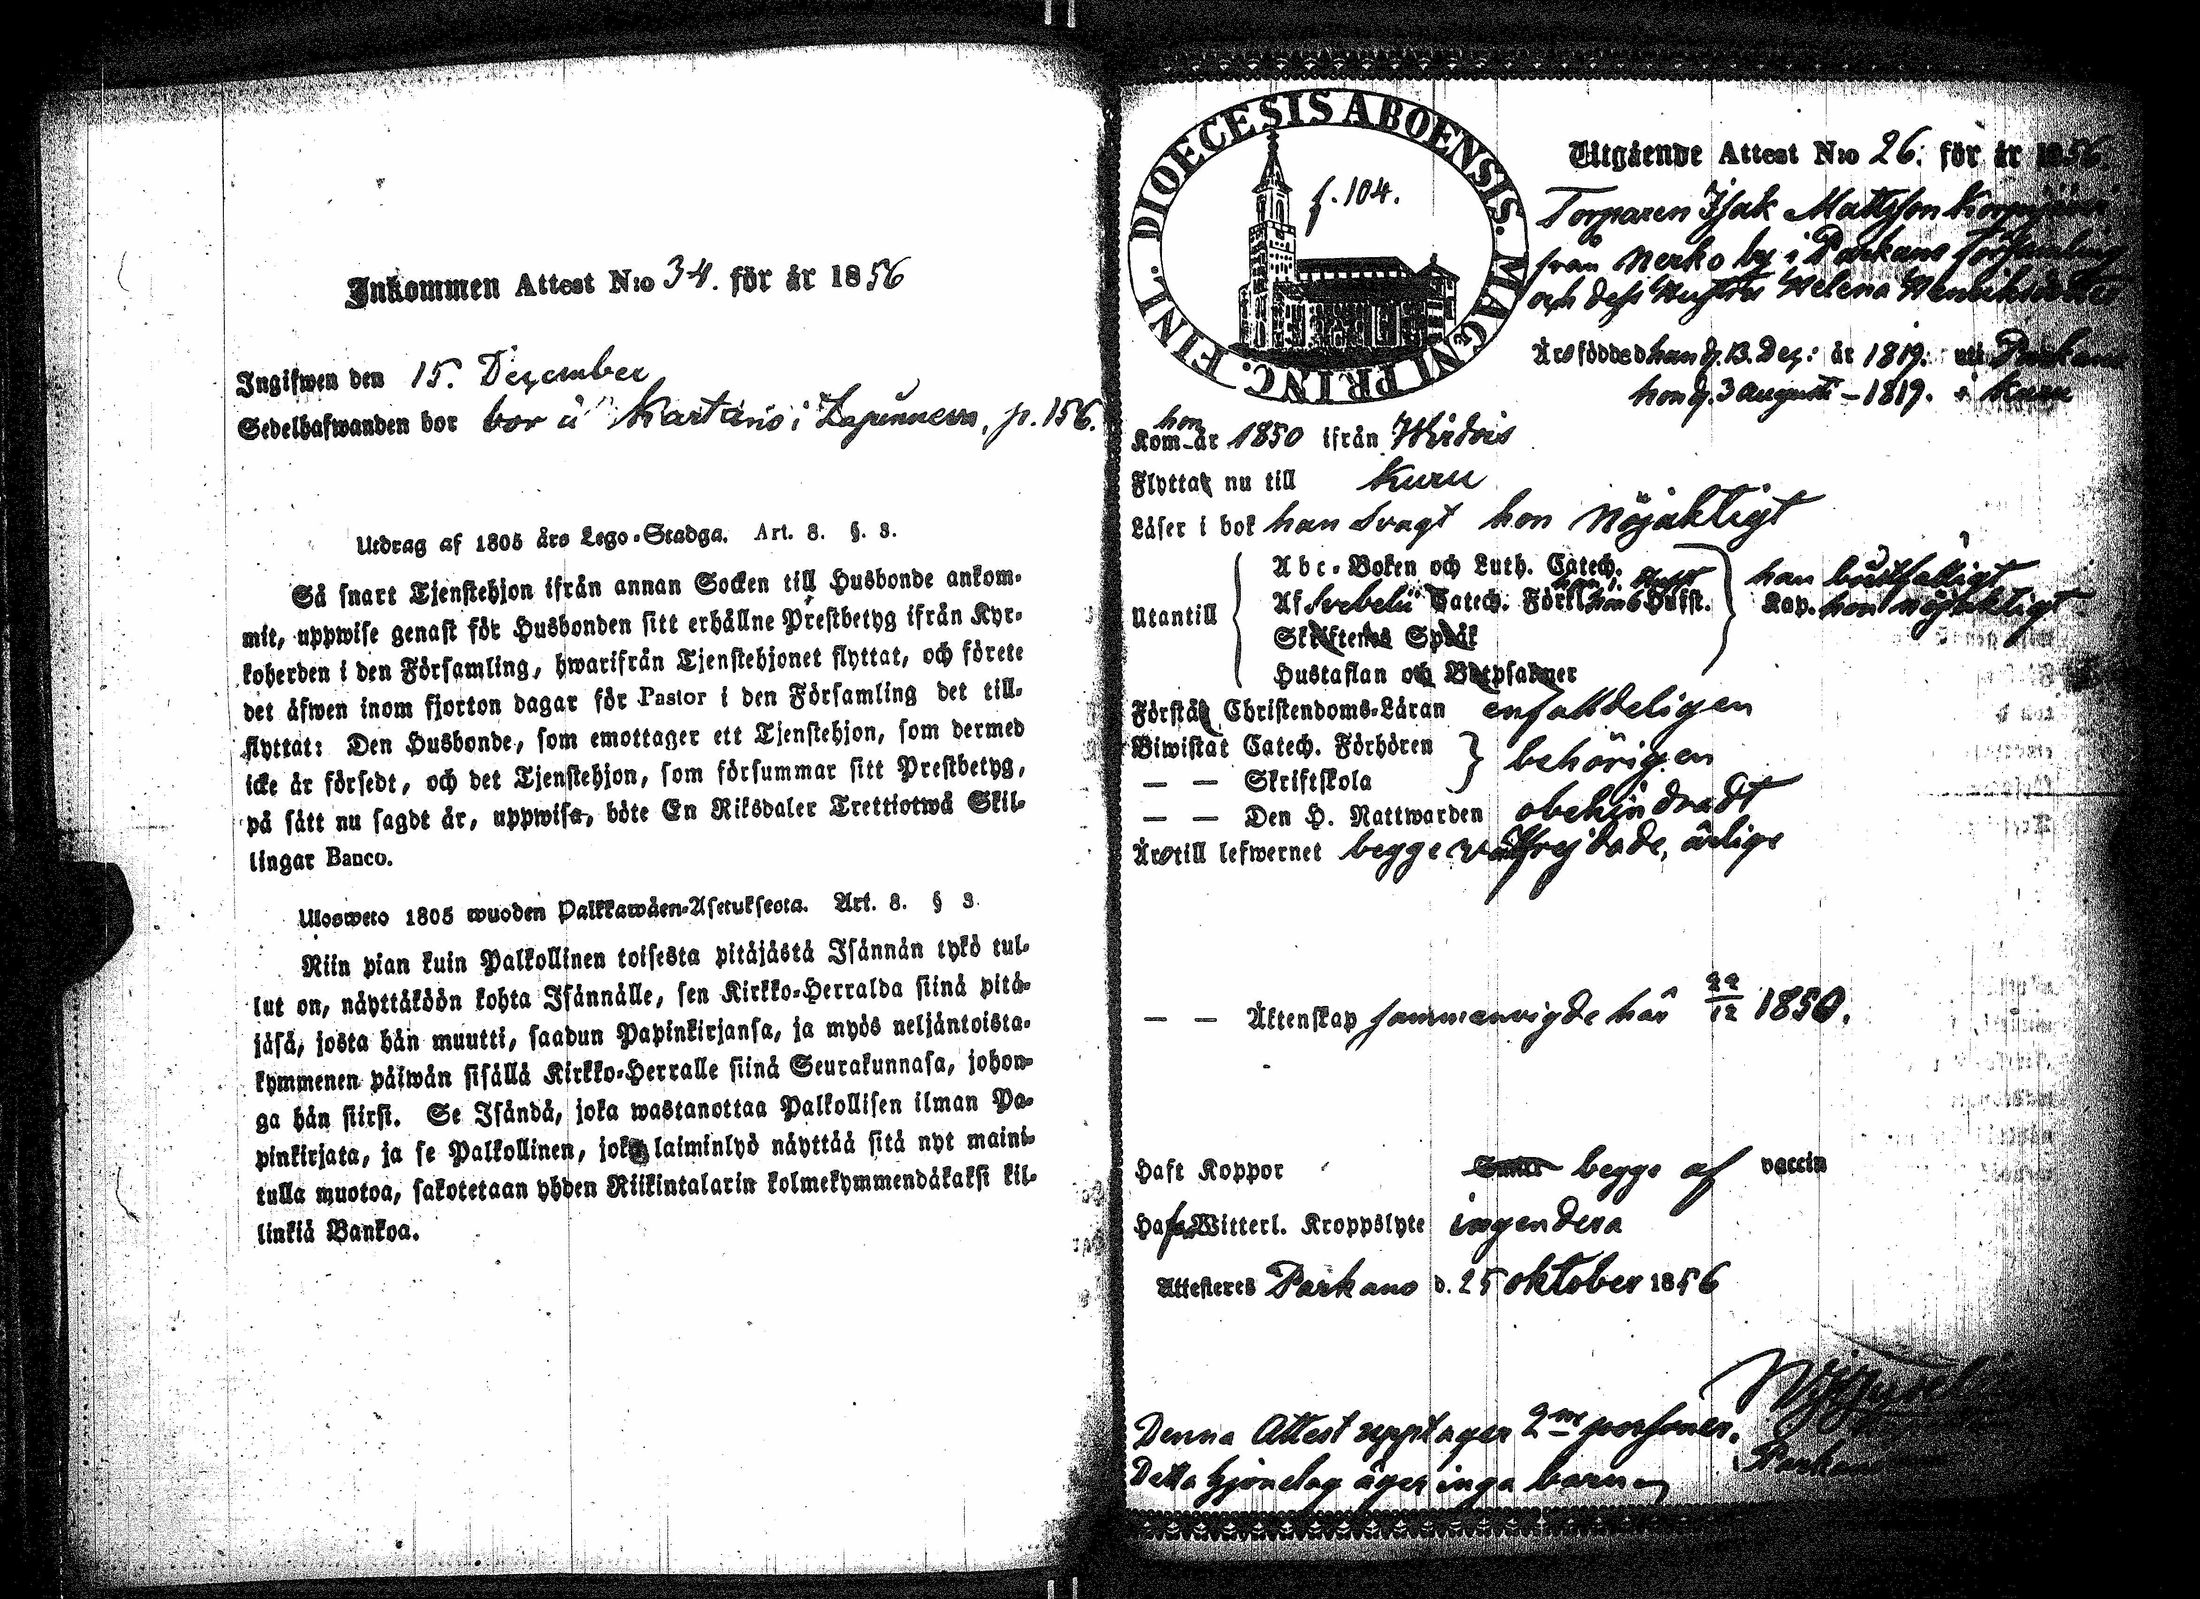 Inkommen Attest N:o 34. för år 1856
Ingifwen den 15. December
Sedelhafwanden bor bor å Kartano i, p. 156.
Utdrag af 1805 års Lego-Stadga. Art. 8. §. 3.
Så snart Tjenstehjon ifrån annan Socken till Husbonde ankom-
mit, uppwise genast för Husbonden sitt erhållne Prestbetyg ifrån Kyr-
koherden i den Församling, hwarifrån Tjenstehjonet flyttat, och förete
det äfwen inom fjorton dagar för Pastor i den Församling det till-
flyttat: Den Husbonde, som emottager ett Tjenstehjon, som dermed
icke är försedt, och det Tjenstehjon, som försummar sitt Prestbetyg,
på sätt nu sagdt är, uppwisa, böte En Riksdaler Trettiotwå Skil-
lingar Banco.
Ulosweto 1805 wuoden Palkkawäen-Asetuksesta. Art. 8. § 3.
Niin pian kuin Palkollinen toisesta pitäjästä Isännän tykö tul-
lut on, näyttäköön kohta Isännälle, sen Kirkko-Herralda siinä pitä-
jäsä, josta hän muutti, saadun Papinkirjansa, ja myös neljäntoista-
kymmenen päiwän sisällä Kirkko-Herralle siinä Seurakunnasa, johon-
ga hän siirsi. Se Isändä, joka wastanottaa Palkollisen ilman Pa-
pinkirjata, ja se Palkollinen, joka laiminlyö näyttää sitä nyt maini-
tulla muotoa, sakotetaan yhden Riikintalarin kolmekymmendäkaksi kil-
linkiä Bankoa.
DIOECESIS ABOENSIS. MAGNI PRINC. FINL.
f. 104.
Utgående Attest N:o 26. för år 1856.
Torparen Isak Mattsson
från Nerko by i Parkano församling
och dess Hustru Helena
Äro födde han d. 13. Dec: år 1819. uti Parkano
hon d. 3 augusti – 1819. i Kuru
hon
Kom år 1850 ifrån Wirdois
Flytta nu till Kuru
Läser i bok han svagt hon nöjaktigt
Utantill
Abc-Boken och Luth. Catech.
Af Svebelii Catech. Förkl. Hufst. Kap.
Skriftenes Språk
Hustaflan och Botpsalmer
han bristfälligt
hon nöjaktigt
Förstå Christendoms-Läran enfalldeligen
Biwistat Catech. Förhören
— — Skriftskola
behörigen
— — Den H. Nattwarden obehindradt
Äro till lefwernet begge välfrejdade, ärlige
— — Äktenskap sammanvigde här 22/12 1850.
Haft Koppor begge af vaccin
Hafva Witterl. Kroppslyte ingendera
Attesteres Parkano d. 25 oktober 1856
Denna Attest upptager 2ne personer.
Detta hjonelag äger inga barn
Parkano